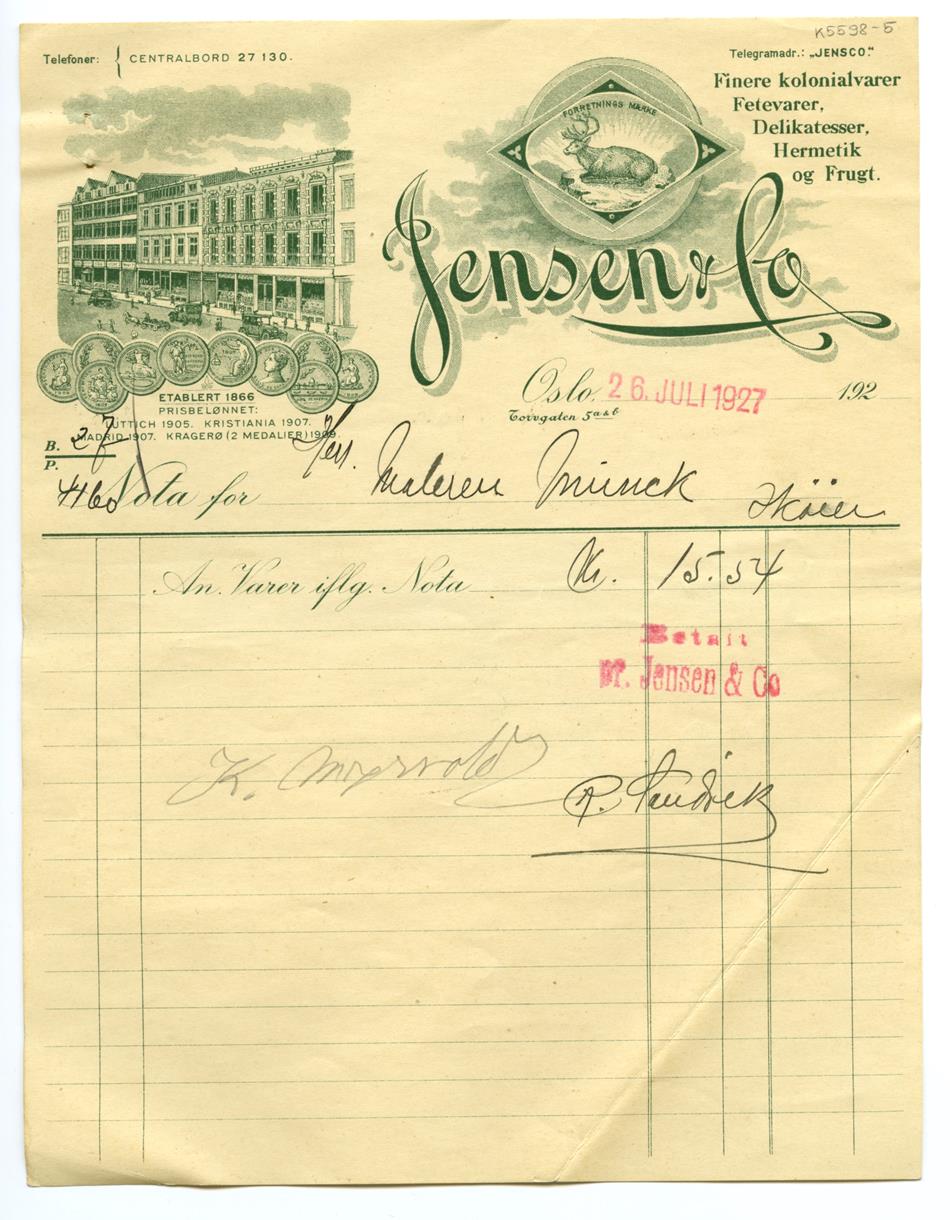 K5598-5
Telefoner: { CENTRALBORD 27 130.
Telegramadr.: „JENSCO."
Finere kolonialvarer
Fetevarer,
Delikatesser,
Hermetik
og Frugt.
FORRETNINGS MÆRKE
Jensen & Co
ETABLERT 1866
PRISBELØNNET:
LÜTTICH 1905. KRISTIANIA 1907.
MADRID 1907. KRAGERØ (2 MEDALIER) 1909.
Oslo, 26. JULI 1927 192
Torvgaten 5 a & b
B. 27
P. 4460
Nota for Herr. Maleren Munck Skøien
An. Varer iflg. Nota Kr. 15.54
Betalt
pr. Jensen & Co
K. Myrvold